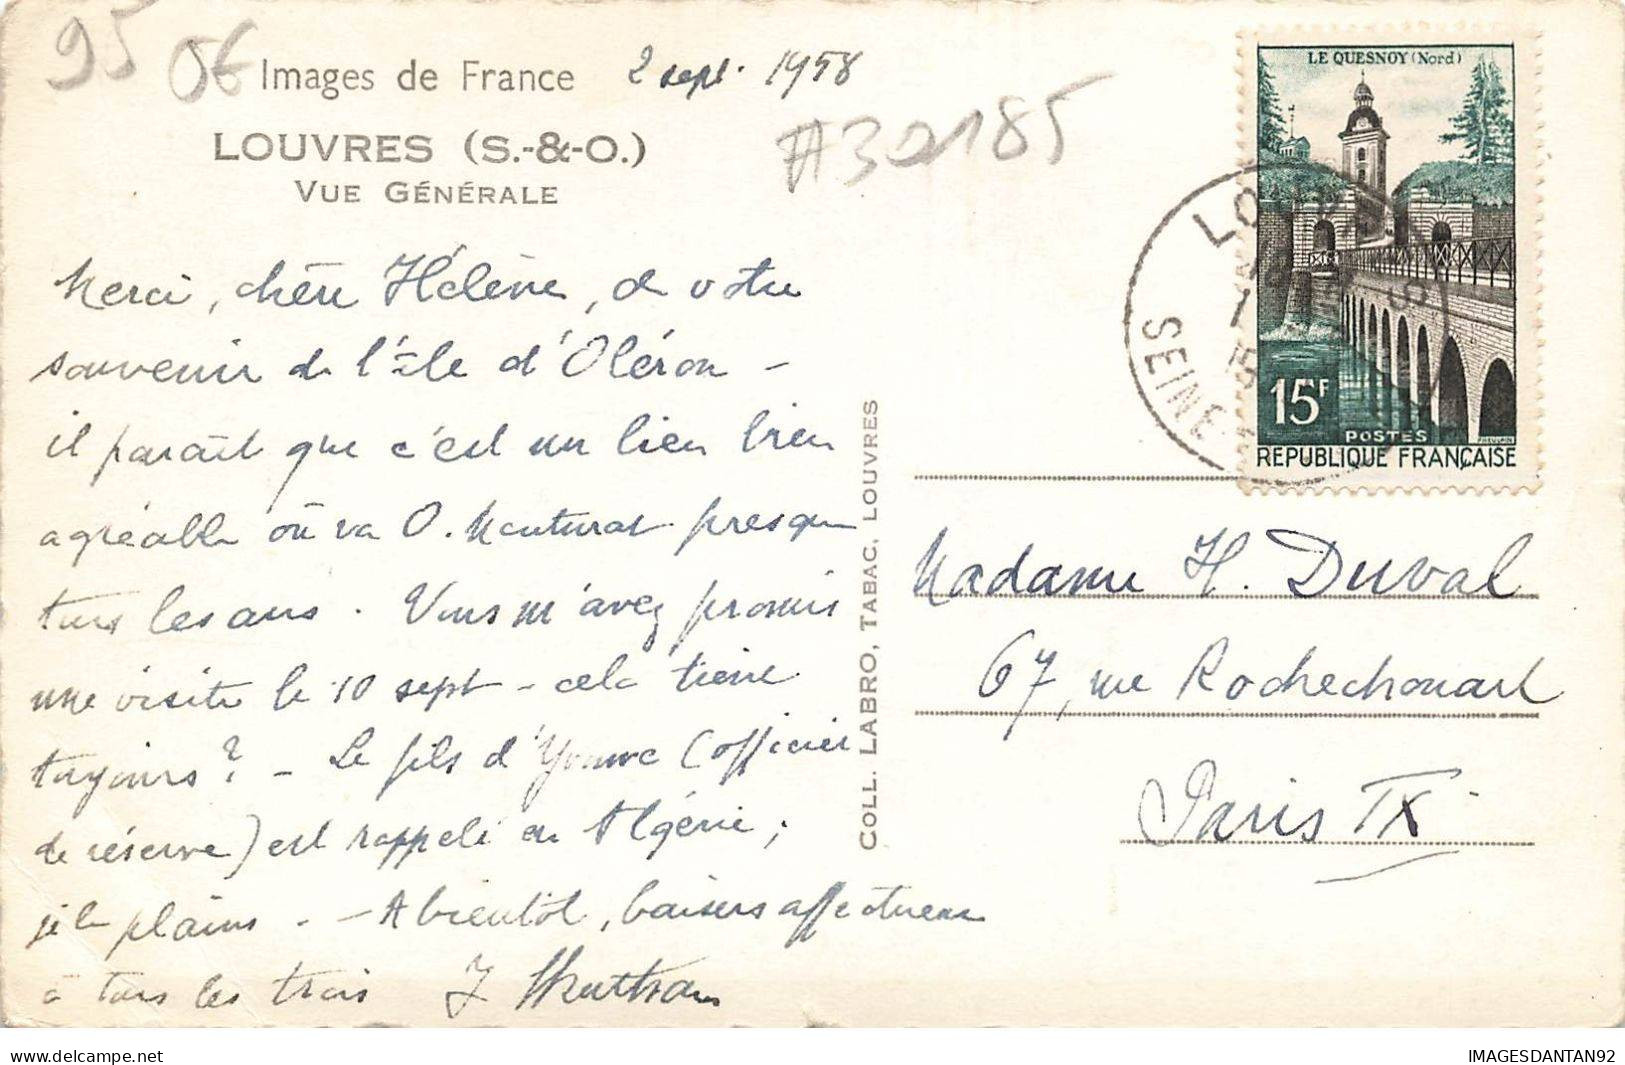 95 06
Images de France
2 sept. 1958
LOUVRES (S.-&-O.)
VUE GÉNÉRALE
#30185
Merci, chère Hélène, de votre
souvenir de l'île d'Oléron -
il paraît que c'est un lieu bien
agréable où va O. presque
tous les ans. Vous m'avez promis
une visite le 10 sept - cela tient
toujours ? - Le fils d'Yvonne (officier
de réserve) est rappelé en Algérie;
je le plains. - A bientôt, baisers affectueux
à tous les trois J
COLL. LABRO, TABAC, LOUVRES
LE QUESNOY (Nord)
15F
POSTES
REPUBLIQUE FRANÇAISE
SEINE
Madame H. Duval
67, rue Rochechouart
Paris IX
IMAGESDANTAN92
www.delcampe.net